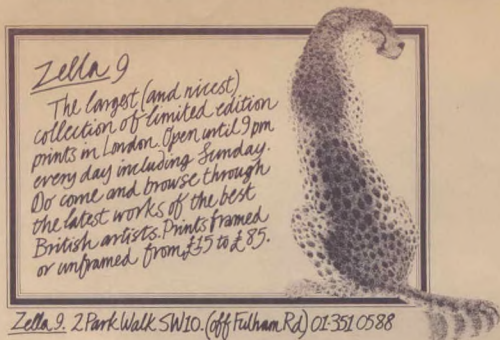 Zella 9
The largest (and nicest)
collection of limited edition
prints in London. Open until 9pm
every day including Sunday.
Do come and browse through
the latest works of the best
British artists. Prints framed
or unframed from £15 to £85.
Zella 9. 2 Park Walk SW10. (off Fulham Rd) 01-351 0588